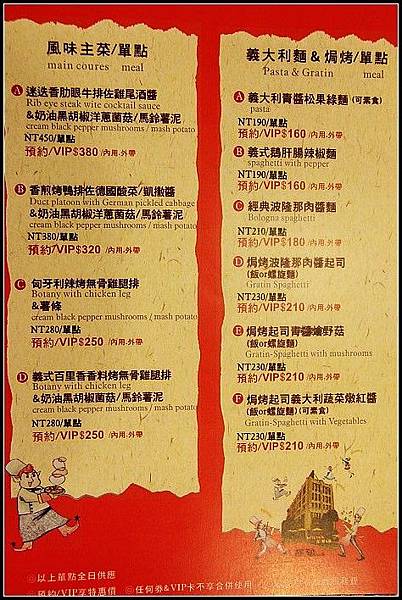 風味主菜/單點
main coures meal
A 迷迭香肋眼牛排佐雞尾酒醬
Rib eye steak wite cocktail sauce
&奶油黑胡椒洋蔥菌菇/馬鈴薯泥
cream black pepper mushrooms / mash potato
NT450/單點
預約/VIP$380 /內用.外帶
B 香煎烤鴨排佐德國酸菜/凱撒醬
Duct platoon with German pickled cabbage
&奶油黑胡椒洋蔥菌菇/馬鈴薯泥
cream black pepper mushrooms / mash potato
NT380/單點
預約/VIP$320 /內用.外帶
C 匈牙利辣烤無骨雞腿排
Botany with chicken leg
&薯條
cream black pepper mushrooms / mash potato
NT280/單點
預約/VIP$250 /內用.外帶
D 義式百里香香料烤無骨雞腿排
Botany with chicken leg
&奶油黑胡椒菌菇/馬鈴薯泥
cream black pepper mushrooms / mash potato
NT280/單點
預約/VIP$250 /內用.外帶
◎以上單點全日供應
預約/VIP享特惠價
義大利麵&焗烤/單點
Pasta & Gratin meal
A 義大利青醬松果綠麵(可素食)
pasta
NT190/單點
預約/VIP$160 /內用.外帶
B 義式鵝肝腸辣椒麵
spaghetti with pepper
NT190/單點
預約/VIP$160 /內用.外帶
C 經典波隆那肉醬麵
Bologna spaghetti
NT210/單點
預約/VIP$180 /內用.外帶
D 焗烤波隆那肉醬起司
(飯or螺旋麵)
Gratin Spaghetti
NT230/單點
預約/VIP$210 /內用.外帶
E 焗烤起司青醬燴野菇
(飯or螺旋麵)
Gratin-Spaghetti with mushrooms
NT230/單點
預約/VIP$210 /內用.外帶
F 焗烤起司義大利蔬菜燉紅醬
(飯or螺旋麵)(可素食)
Gratin-Spaghetti with Vegetables
NT230/單點
預約/VIP$210 /內用.外帶
◎任何券&VIP卡不享合併使用